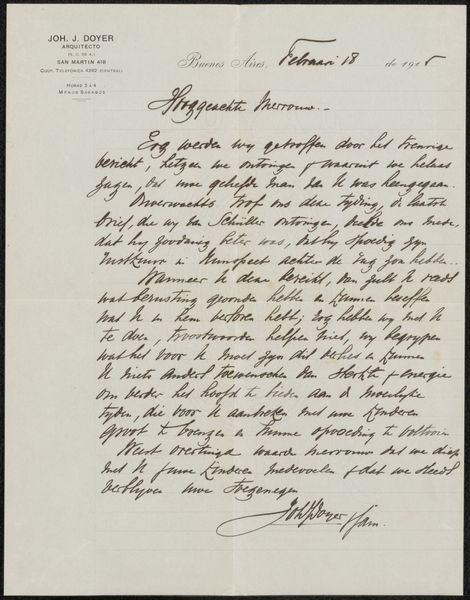 JOH. J. DOYER
ARQUITECTO
SAN MARTIN 418
COOP. TELEFÓNICA 4262 (CENTRAL)
HORAS 2 Á 4
MENOS SÁBADOS
Buenos Aires, Februari 18 de 191
Hooggeachte Mevrouw.-
Erg werden wij getroffen door het treurige
bericht, hetgeen we ontvingen & waaruit we helaas
zagen, dat uwe geliefde man van U was heengegaan.
Onverwachts trof ons deze tijding, de laatste
brief, die wij van Schiller ontvingen, ons mede,
dat hij zoodanig beter was, dat hij spoedig zijn
in Nunspeet achter de rug zou hebben.-
Wanneer U deze bereikt, dan zult U reeds
wat berusting gevonden hebben en kunnen beseffen
wat U in hem verloren hebt; nog hebben wij met U
te doen, troostwoorden helpen niet, wij begrijpen
wat het voor U moet zijn dit verlies en kunnen
U niets anders toewenschen dan sterkte & energie
om verder het hoofd te bieden aan de moeilijke
tijden, die voor U aanbreken met uwe kinderen
groot te brengen en hunne opvoeding te voltooien
Weest overtuigd waarde mevrouw dat we diep
met U & uwe kinderen medevoelen & dat we steeds
verblijven uwe toegenegen
Joh J Doyer & fam.